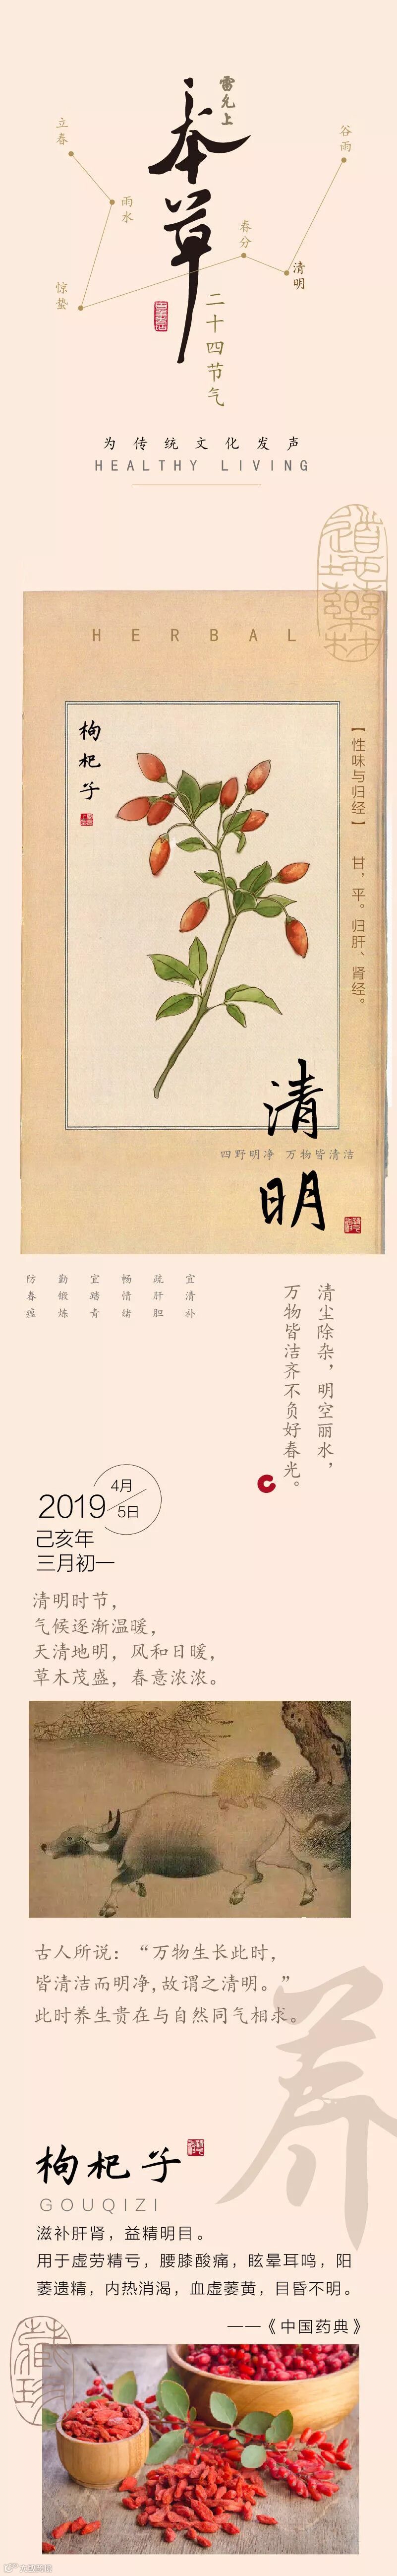 雷允上
本草
立春
雨水
惊蛰
春分
清明
谷雨
二十四节气
为传统文化发声
HEALTHY LIVING
道地藥材
HERBAL
枸杞子
【性味与归经】 甘，平。归肝、肾经。
清明
四野明净 万物皆清洁
防春瘟
勤锻炼
宜踏青
畅情绪
疏肝胆
宜清补
清尘除杂，明空丽水，
万物皆洁齐不负好春光。
2019
4月
5日
己亥年
三月初一
清明时节，
气候逐渐温暖，
天清地明，风和日暖，
草木茂盛，春意浓浓。
古人所说：“万物生长此时，
皆清洁而明净,故谓之清明。”
此时养生贵在与自然同气相求。
养
枸杞子
GOUQIZI
滋补肝肾，益精明目。
用于虚劳精亏，腰膝酸痛，眩晕耳鸣，阳
萎遗精，内热消渴，血虚萎黄，目昏不明。
——《中国药典》